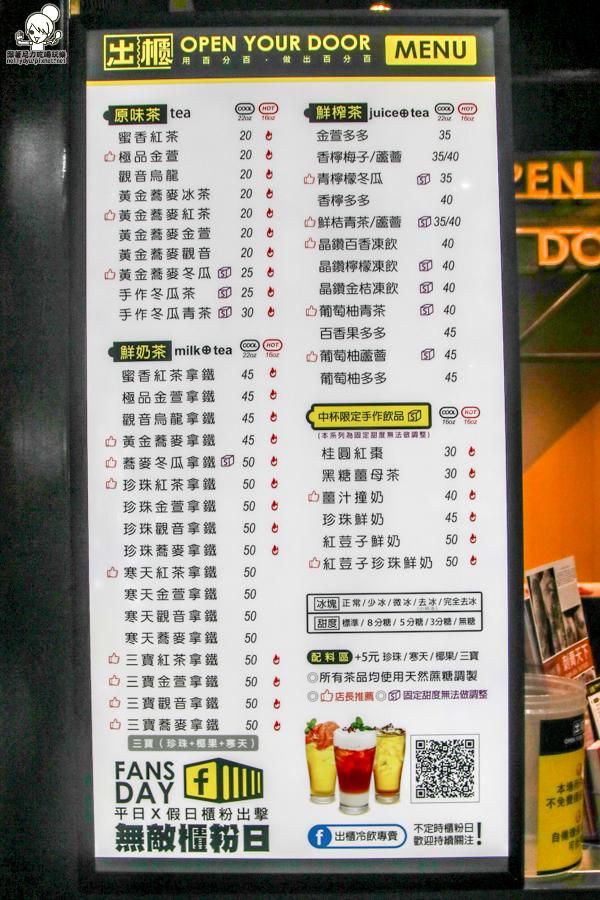 跟著尼力吃喝玩樂
nellydyu.pixnet.net
出櫃 OPEN YOUR DOOR MENU
用百分百・做出百分百
原味茶 tea COOL 22oz HOT 16oz
蜜香紅茶 20
極品金萱 20
觀音烏龍 20
黃金蕎麥冰茶 20
黃金蕎麥紅茶 20
黃金蕎麥金萱 20
黃金蕎麥觀音 20
黃金蕎麥冬瓜 25
手作冬瓜茶 25
手作冬瓜青茶 30
鮮奶茶 milk⊕tea COOL 22oz HOT 16oz
蜜香紅茶拿鐵 45
極品金萱拿鐵 45
觀音烏龍拿鐵 45
黃金蕎麥拿鐵 45
蕎麥冬瓜拿鐵 50
珍珠紅茶拿鐵 50
珍珠金萱拿鐵 50
珍珠觀音拿鐵 50
珍珠蕎麥拿鐵 50
寒天紅茶拿鐵 50
寒天金萱拿鐵 50
寒天觀音拿鐵 50
寒天蕎麥拿鐵 50
三寶紅茶拿鐵 50
三寶金萱拿鐵 50
三寶觀音拿鐵 50
三寶蕎麥拿鐵 50
三寶(珍珠+椰果+寒天)
FANS DAY
平日X假日櫃粉出擊
無敵櫃粉日
鮮榨茶 juice⊕tea COOL 22oz HOT 16oz
金萱多多 35
香檸梅子/蘆薈 35/40
青檸檬冬瓜 35
香檸多多 40
鮮桔青茶/蘆薈 35/40
晶鑽百香凍飲 40
晶鑽檸檬凍飲 40
晶鑽金桔凍飲 40
葡萄柚青茶 40
百香果多多 45
葡萄柚蘆薈 45
葡萄柚多多 45
中杯限定手作飲品 COOL 16oz HOT 16oz
(本系列為固定甜度無法做調整)
桂圓紅棗 30
黑糖薑母茶 30
薑汁撞奶 40
珍珠鮮奶 45
紅荳子鮮奶 50
紅荳子珍珠鮮奶 50
冰塊 正常/少冰/微冰/去冰/完全去冰
甜度 標準/8分糖/5分糖/3分糖/無糖
配料區 +5元 珍珠/寒天/椰果/三寶
◎所有茶品均使用天然蔗糖調製
◎店長推薦◎固定甜度無法做調整
f 出櫃冷飲專賣
不定時櫃粉日
歡迎持續關注!
PEN
DO